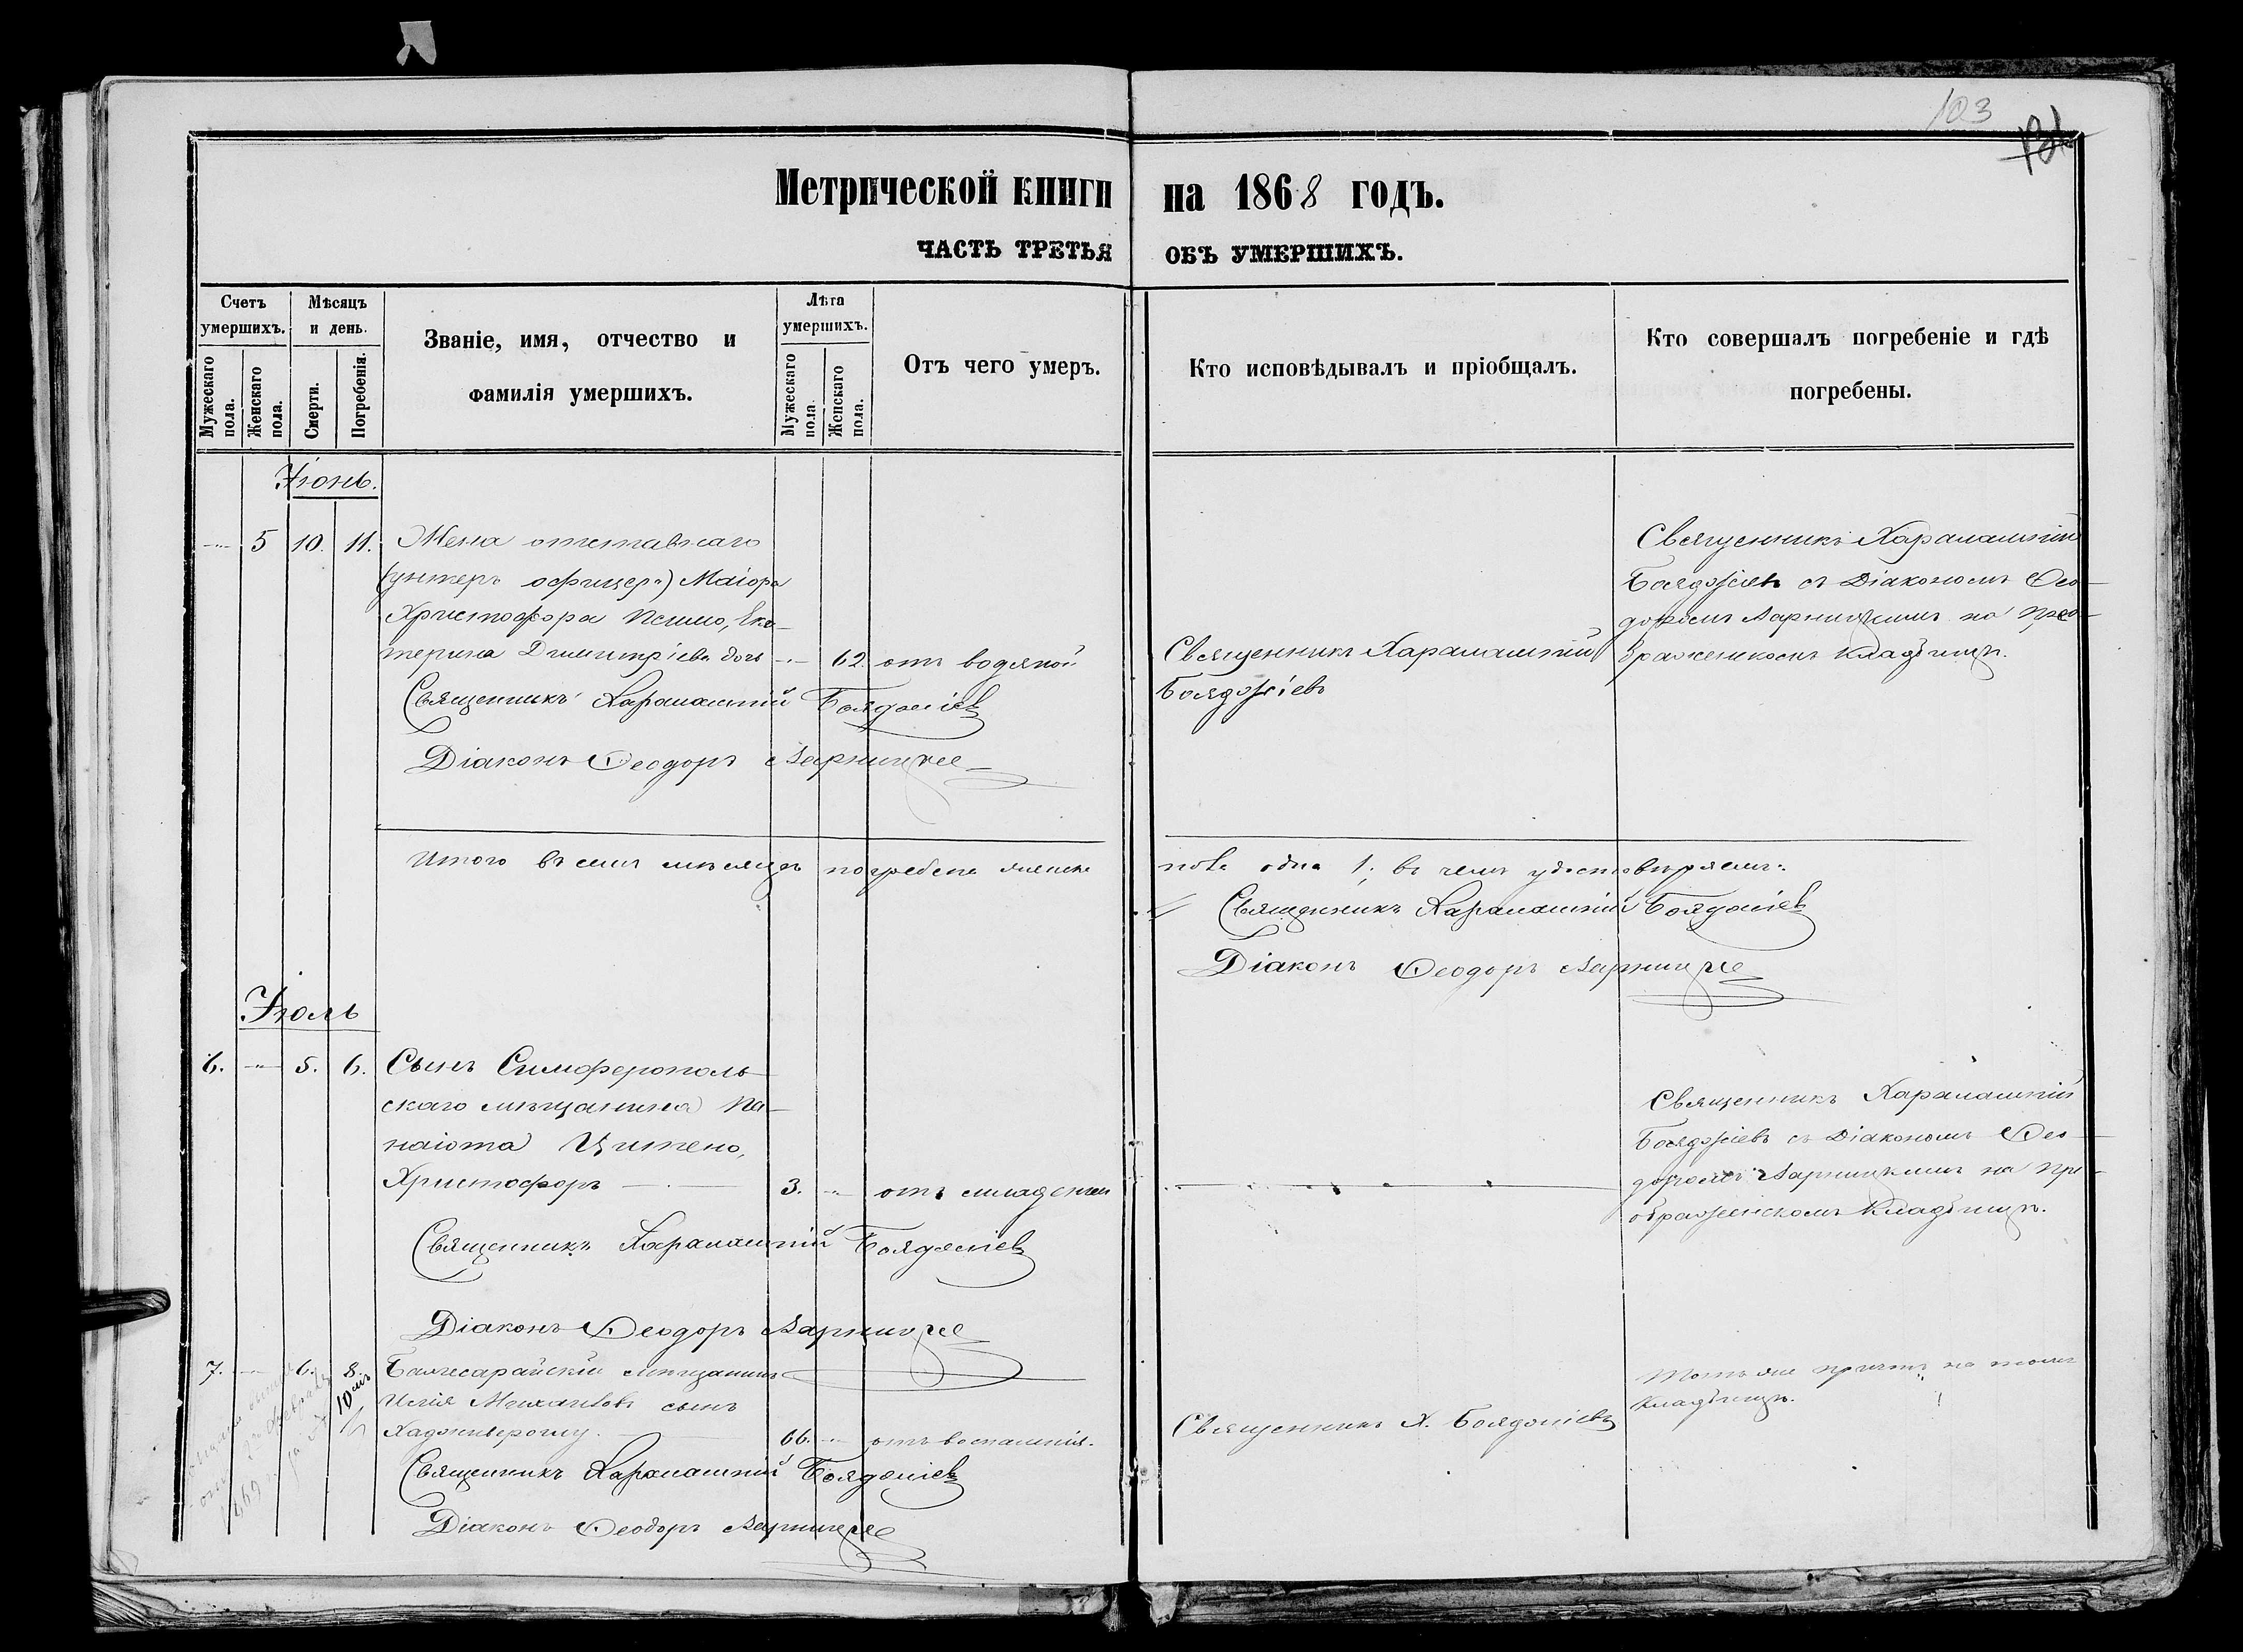 103
Метрической книги на 1868 годъ.
ЧАСТЬ ТРЕТЬЯ ОБЪ УМЕРШИХЪ.
Счетъ умершихъ.
Мужескаго пола.
Женскаго пола.
Мѣсяцъ и день.
Смерти.
Погребенія.
Званіе, имя, отчество и
фамилія умершихъ.
Лѣта умершихъ.
Мужескаго пола.
Женскаго пола.
Отъ чего умеръ.
Кто исповѣдывалъ и пріобщалъ.
Кто совершалъ погребеніе и гдѣ
погребены.
Іюнь.
5 10. 11. Жена отставнаго
(унтеръ офицеръ) Маіора
Христофора Псимо, Ека-
терина Димитріева дочь 62 отъ водяной
Священникъ Харалампій Бояджіевъ
Діаконъ Ѳеодоръ
Священникъ Харалампій
Бояджіевъ
Священникъ Харалампій
Бояджіевъ съ Діакономъ Ѳео-
доромъ на Прео-
браженскомъ кладбищѣ.
Итого въ семъ мѣсяцѣ погребена женска
пола одна 1; въ чемъ удостовѣряемъ:
Священникъ Харалампій Бояджіевъ
Діаконъ Ѳеодоръ
Іюль
6. 5. 6. Сынъ Симферополь-
скаго мѣщанина Па-
наіота Цитено,
Христофоръ 3. отъ младенч
Священникъ Харалампій Бояджіевъ
Діаконъ Ѳеодоръ
Священникъ Харалампій
Бояджіевъ съ Діакономъ Ѳео-
доромъ на Пре-
ображенскомъ кладбищѣ.
7. 6. 8. Бахчесарайскій мѣщанинъ
10
Илія Михаиловъ сынъ
66. отъ воспаленія.
Священникъ Харалампій Бояджіевъ
Діаконъ Ѳеодоръ
Священникъ Х. Бояджіевъ
Тотъ же причтъ на томъ
кладбищѣ.